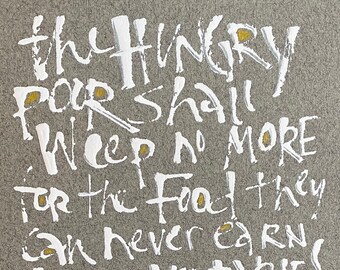 the HUNGRY
POOR shall
Weep no MORE
FOR the Food they
can never earn